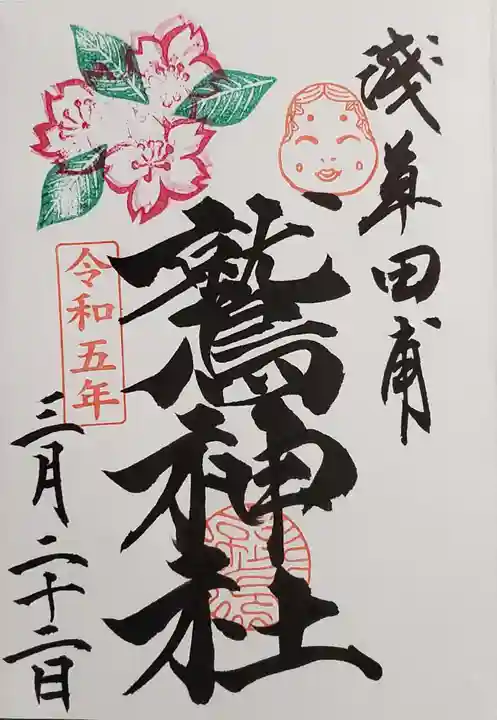 浅草田甫
鷲神社
令和五年
三月二十二日